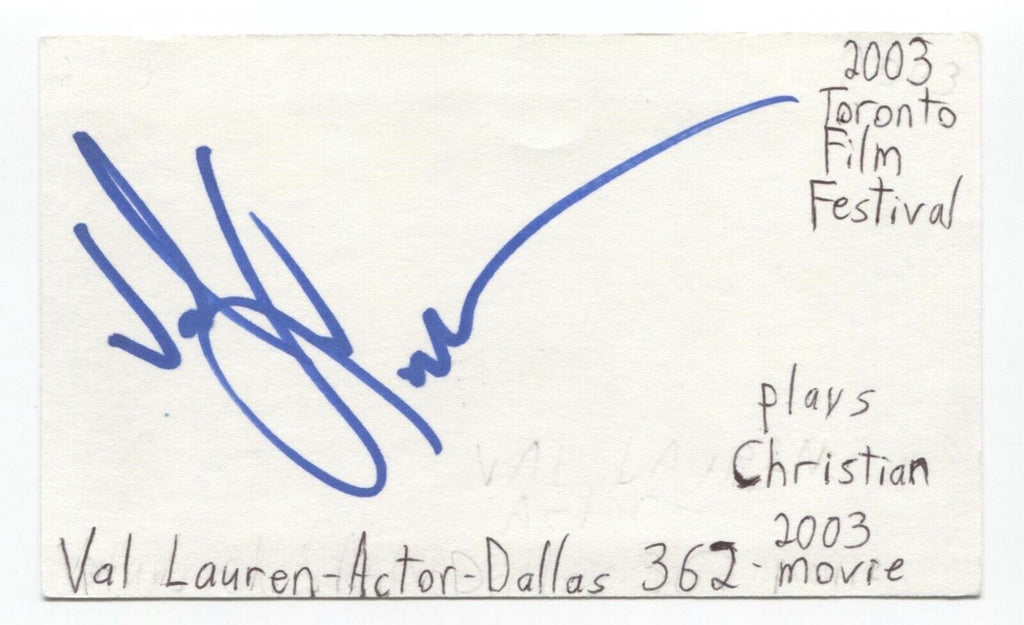 2003
Toronto
Film
Festival
plays
Christian
2003
Val Lauren-Actor-Dallas 362-movie